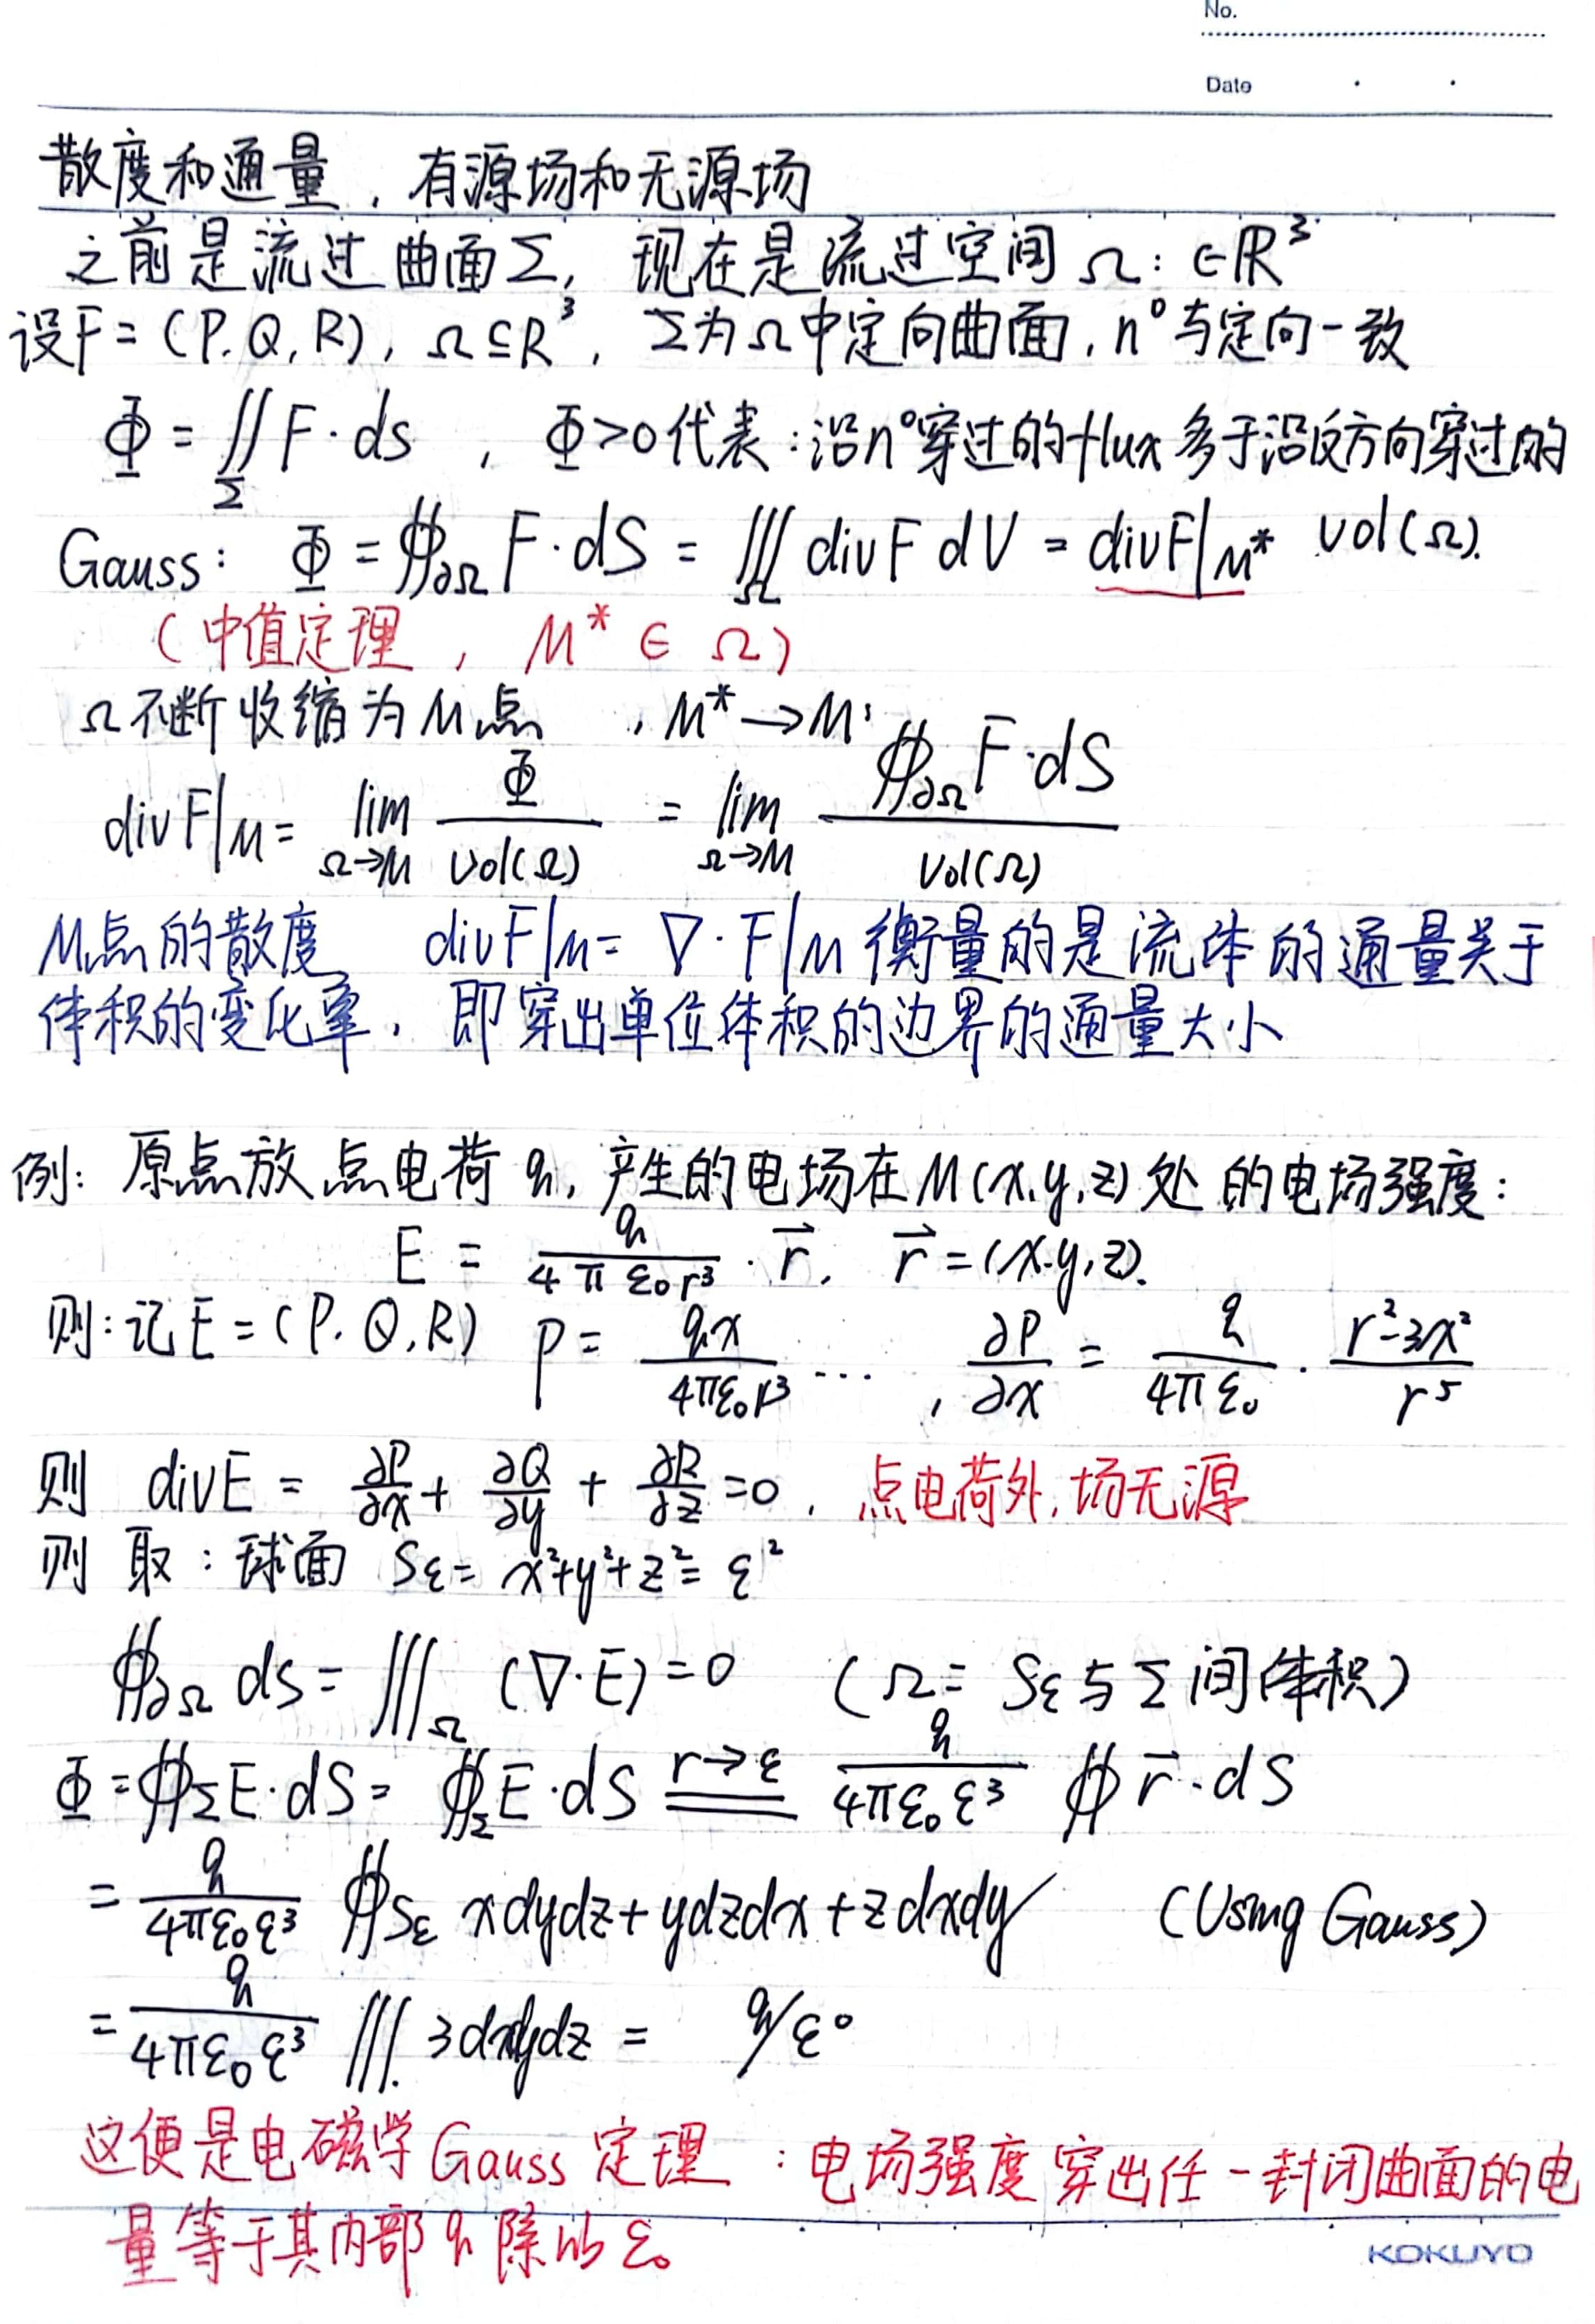 No.
Date
散度和通量，有源场和无源场
之前是流过曲面Σ，现在是流过空间 Ω：∈ℝ³
设F=(P.Q,R)，Ω⊆R³，Σ为Ω中定向曲面，n⁰与定向一致
Φ = ∬_Σ F·ds ，Φ>0代表：沿n⁰穿过的flux多于沿反方向穿过的
Gauss： Φ = ∯_∂Ω F·dS = ∭_Ω divF dV = divF|_M* vol(Ω).
（中值定理，M* ∈ Ω）
Ω不断收缩为M点，M*→M：
divF|_M = lim_{Ω→M} Φ/Vol(Ω) = lim_{Ω→M} ∯_∂Ω F·dS / Vol(Ω)
M点的散度 divF|_M = ∇·F|_M 衡量的是流体的通量关于
体积的变化率，即穿出单位体积的边界的通量大小
例：原点放点电荷 q，产生的电场在M(x,y,z)处的电场强度：
E = q/(4πε₀r³) · r⃗, r⃗=(x.y,z).
则：记E=(P.Q,R) P = qx/(4πε₀r³) ... , ∂P/∂x = q/(4πε₀) · (r²-3x²)/r⁵
则 divE = ∂P/∂x + ∂Q/∂y + ∂R/∂z =0，点电荷外，场无源
则 取：球面 S_ε = x²+y²+z² = ε²
∯_∂Ω ds = ∭_Ω (∇·E) = 0 （Ω = S_ε与Σ间体积）
Φ = ∯_Σ E·dS = ∯_Σ E·dS =(r→ε)= q/(4πε₀ε³) ∯ r⃗·dS
= q/(4πε₀ε³) ∯_Sε xdydz+ydzdx+zdxdy (Using Gauss)
= q/(4πε₀ε³) ∭. 3dxdydz = q/ε°
这便是电磁学Gauss定理：电场强度穿出任一封闭曲面的电
量等于其内部q除以ε₀
KOKUYO